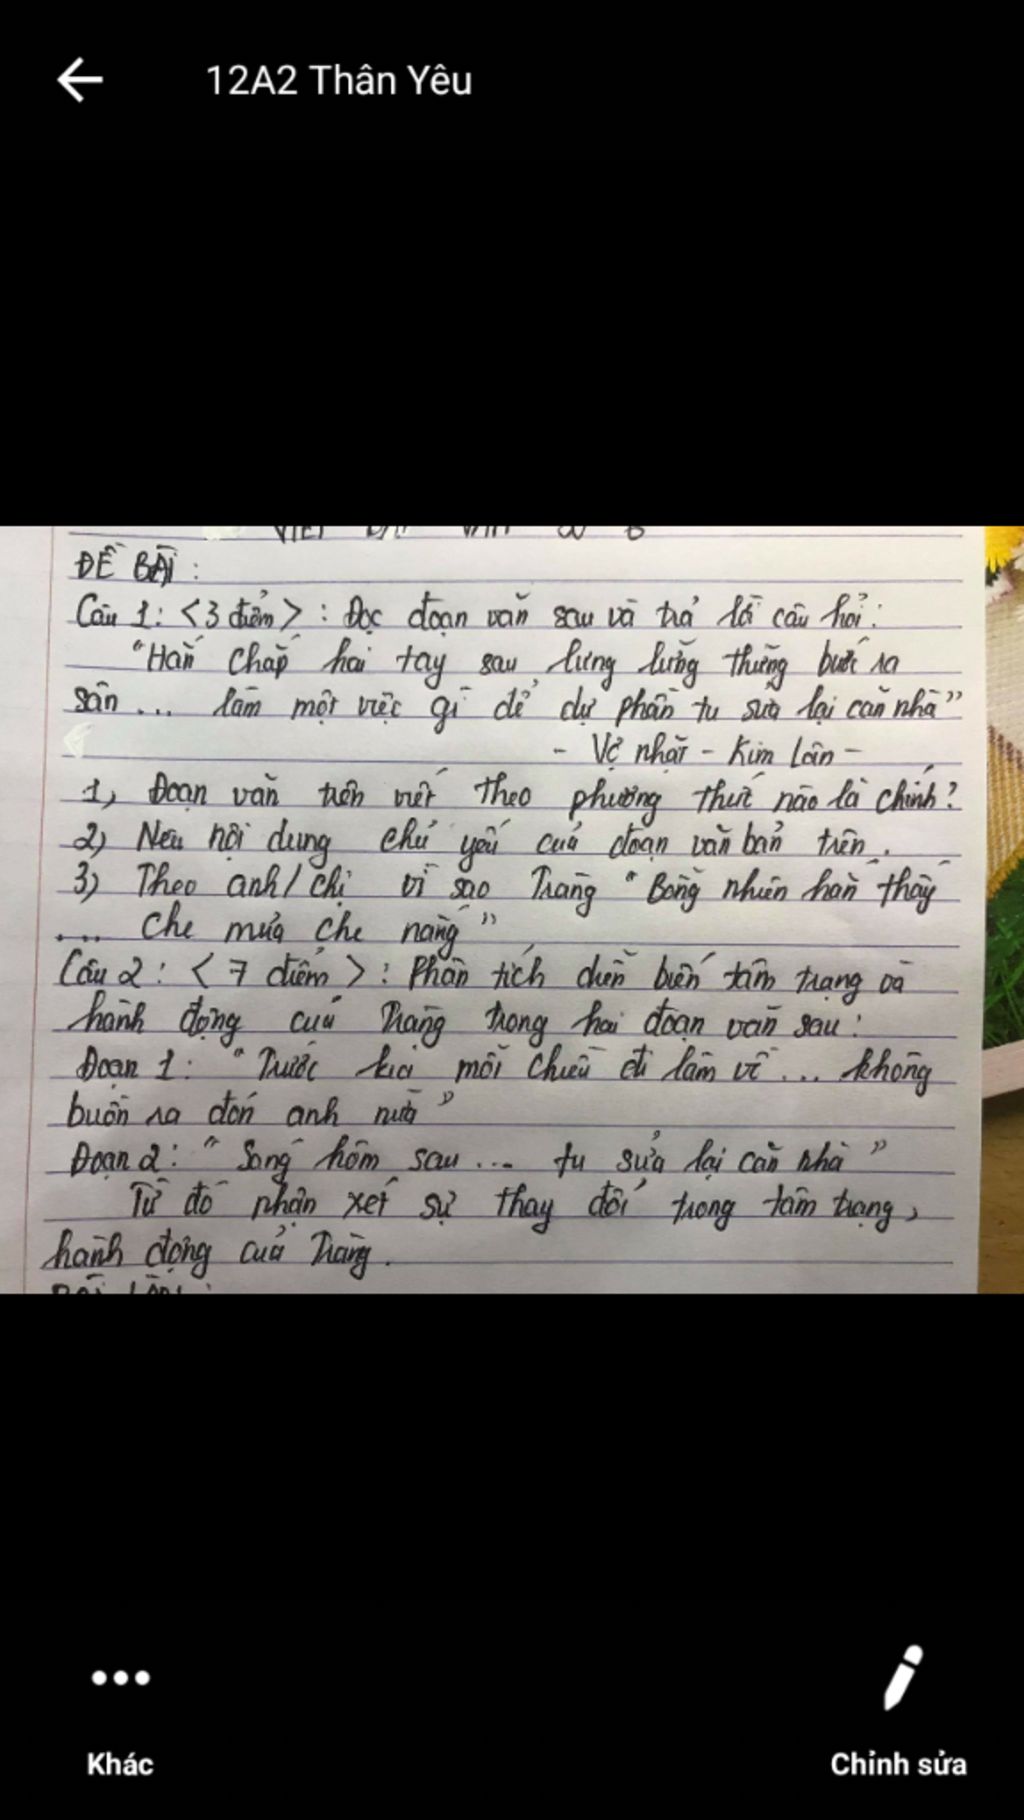 12A2 Thân Yêu
ĐỀ BÀI :
Câu 1: <3 điểm> : Đọc đoạn văn sau và trả lời câu hỏi:
"Hắn chắp hai tay sau lưng lững thững bước ra
sân ... làm một việc gì để dự phần tu sửa lại căn nhà"
- Vợ nhặt - Kim Lân -
1, Đoạn văn trên viết theo phương thức nào là chính?
2) Nêu nội dung chủ yếu của đoạn văn bản trên.
3) Theo anh/chị vì sao Tràng "Bỗng nhiên hắn thấy
.... che mưa che nắng"
Câu 2: <7 điểm>: Phân tích diễn biến tâm trạng và
hành động của Tràng trong hai đoạn văn sau:
Đoạn 1: "Trước kia mỗi chiều đi làm về ... không
buồn ra đón anh nữa"
Đoạn 2: "Sáng hôm sau ... tu sửa lại căn nhà"
Từ đó nhận xét sự thay đổi trong tâm trạng,
hành động của Tràng.
Khác
Chỉnh sửa